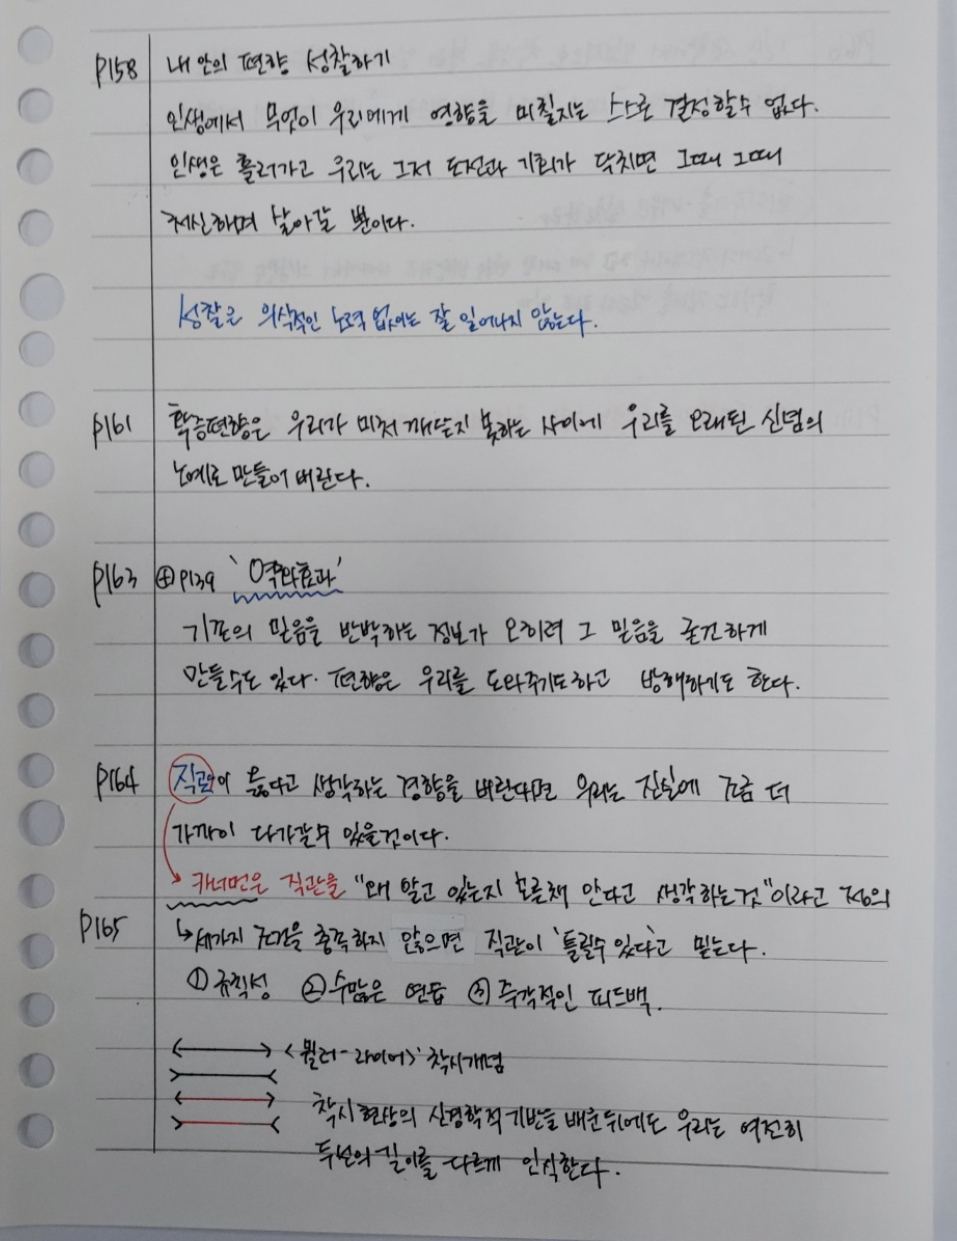 P158 내 안의 편향 성찰하기
인생에서 무엇이 우리에게 영향을 미칠지는 스스로 결정할수 없다.
인생은 흘러가고 우리는 그저 도전과 기회가 닥치면 그때 그때
처신하며 살아갈 뿐이다.
성찰은 의식적인 노력 없이는 잘 일어나지 않는다.
P161 확증편향은 우리가 미처 깨닫지 못하는 사이에 우리를 오래된 신념의
노예로 만들어 버린다.
P163 ⊕P139 '역화효과'
기존의 믿음을 반박하는 정보가 오히려 그 믿음을 굳건하게
만들수도 있다. 편향은 우리를 도와주기도하고 방해하기도 한다.
P164 직관이 옳다고 생각하는 경향을 버린다면 우리는 진실에 조금 더
가까이 다가갈수 있을것이다.
카너먼은 직관을 "왜 알고 있는지 모른채 안다고 생각하는것"이라고 정의
P165 ↳세가지 조건을 충족하지 않으면 직관이 '틀릴수 있다'고 믿는다.
① 규칙성 ② 수많은 연습 ③ 즉각적인 피드백.
<뮐러-라이어> 착시개념
착시현상의 신경학적기반을 배운뒤에도 우리는 여전히
두선의 길이를 다르게 인식한다.